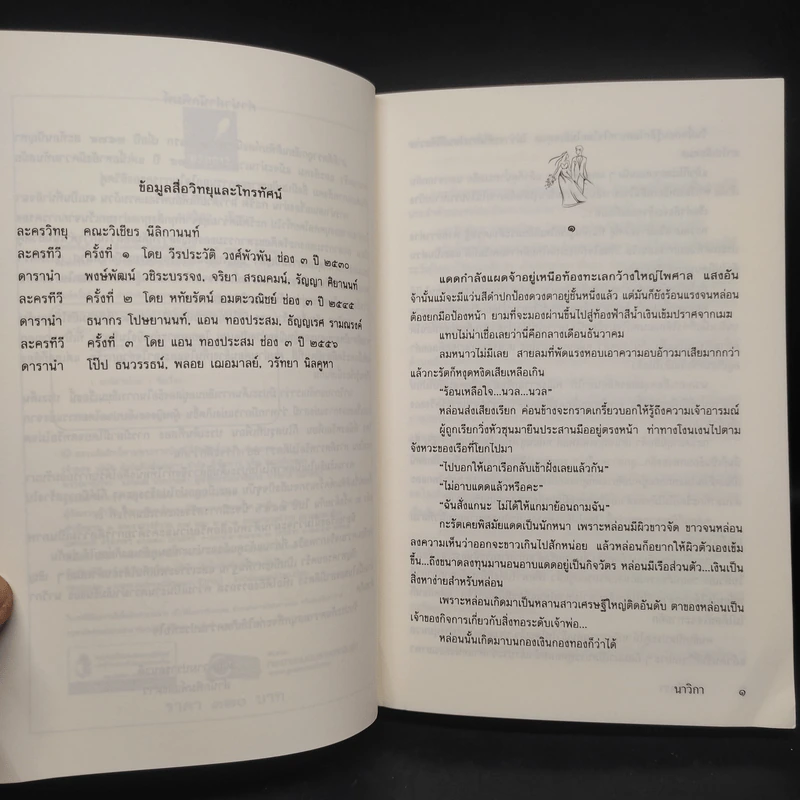 ข้อมูลสื่อวิทยุและโทรทัศน์
ละครวิทยุ คณะวิเชียร นีลิกานนท์
ละครทีวี ครั้งที่ ๑ โดย วีรประวัติ วงศ์พัวพัน ช่อง ๓ ปี ๒๕๓๐
ดารานำ พงษ์พัฒน์ วชิระบรรจง, จริยา สรณคมน์, รัญญา ศิยานนท์
ละครทีวี ครั้งที่ ๒ โดย หทัยรัตน์ อมตะวณิชย์ ช่อง ๓ ปี ๒๕๔๕
ดารานำ ธนากร โปษยานนท์, แอน ทองประสม, ธัญญเรศ รามณรงค์
ละครทีวี ครั้งที่ ๓ โดย แอน ทองประสม ช่อง ๓ ปี ๒๕๕๖
ดารานำ โป๊ป ธนวรรธน์, พลอย เฌอมาลย์, วรัทยา นิลคูหา
๑
แดดกำลังแผดจ้าอยู่เหนือท้องทะเลกว้างใหญ่ไพศาล แสงอัน
จ้านั้นแม้จะมีแว่นสีดำปกป้องดวงตาอยู่ชั้นหนึ่งแล้ว แต่มันก็ยังร้อนแรงจนหล่อน
ต้องยกมือป้องหน้า ยามที่จะมองผ่านขึ้นไปสู่ท้องฟ้าสีน้ำเงินเข้มปราศจากเมฆ
แทบไม่น่าเชื่อเลยว่านี่คือกลางเดือนธันวาคม
ลมหนาวไม่มีเลย สายลมที่พัดแรงหอบเอาความอบอ้าวมาเสียมากกว่า
แล้วกะรัตก็หงุดหงิดเสียเหลือเกิน
“ร้อนเหลือใจ...นวล...นวล”
หล่อนส่งเสียงเรียก ค่อนข้างจะกราดเกรี้ยวบอกให้รู้ถึงความเจ้าอารมณ์
ผู้ถูกเรียกวิ่งหัวซุนมายืนประสานมืออยู่ตรงหน้า ท่าทางโงนเงนไปตาม
จังหวะของเรือที่โยกไปมา
“ไปบอกให้เอาเรือกลับเข้าฝั่งเลยแล้วกัน”
“ไม่อาบแดดแล้วหรือคะ”
“ฉันสั่งแกนะ ไม่ได้ให้แกมาย้อนถามฉัน”
กะรัตเคยพิสมัยแดดเป็นนักหนา เพราะหล่อนมีผิวขาวจัด ขาวจนหล่อน
ลงความเห็นว่าออกจะขาวเกินไปสักหน่อย แล้วหล่อนก็อยากให้ผิวตัวเองเข้ม
ขึ้น...ถึงขนาดลงทุนมานอนอาบแดดอยู่เป็นกิจวัตร หล่อนมีเรือส่วนตัว...เงินเป็น
สิ่งหาง่ายสำหรับหล่อน
เพราะหล่อนเกิดมาเป็นหลานสาวเศรษฐีใหญ่ติดอันดับ ตาของหล่อนเป็น
เจ้าของกิจการเกี่ยวกับสิ่งทอระดับเจ้าพ่อ...
หล่อนนั้นเกิดมาบนกองเงินกองทองก็ว่าได้
นาวิกา ๑